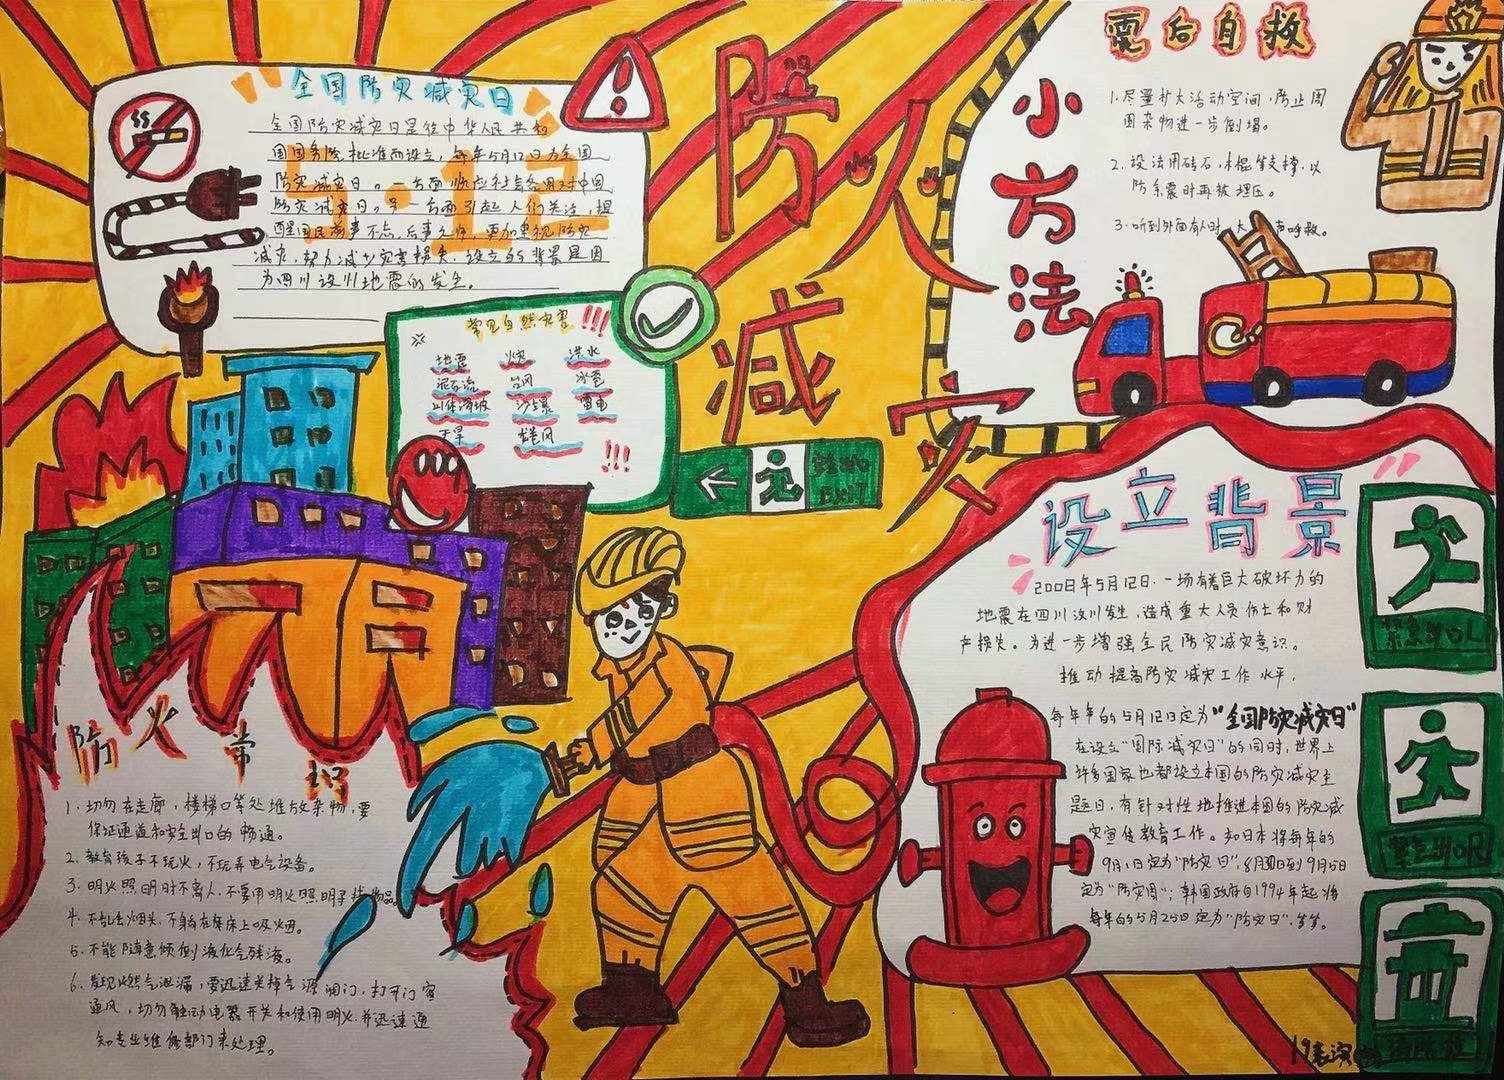 全国防灾减灾日
全国防灾减灾日是经中华人民共和
国国务院批准而设立，每年5月12日为全国
防灾减灾日。一方面顺应社会各界对中国
防灾减灾日。另一方面引起人们关注，提
醒国民前事不忘，后事之师，更加重视防灾
减灾，努力减少灾害损失。设立的背景是因
为四川汶川地震的发生。
5.12
常见自然灾害 !!!
地震 火灾 洪水
泥石流 台风 冰雹
山体滑坡 沙尘暴 雷电
干旱 龙卷风 !!!
防灾减灾
小方法
震后自救
1.尽量扩大活动空间，防止周
围杂物进一步倒塌。
2.设法用砖石、木棍等支撑，以
防余震时再被埋压。
3.听到外面有人时，大声呼救。
EXIT
设立背景
2008年5月12日，一场有着巨大破坏力的
地震在四川汶川发生，造成重大人员伤亡和财
产损失。为进一步增强全民防灾减灾意识。
推动提高防灾减灾工作水平，
每年年的5月12日定为“全国防灾减灾日”
在设立“国际减灾日”的同时，世界上
许多国家也都设立本国的防灾减灾主
题日，有针对性地推进本国的防灾减
灾宣传教育工作。如日本将每年的
9月1日定为“防灾日”，8月30日到9月5日
定为“防灾周”；韩国政府自1994年起将
每年的5月25日定为“防灾日”，等等。
紧急出口L
紧急出口R
消防栓
防火常识
1.切勿在走廊，楼梯口等处堆放杂物，要
保证通道和安全出口的畅通。
2.教育孩子不玩火，不玩弄电气设备。
3.明火照明时不离人，不要用明火照明寻找物品。
4.不乱丢烟头，不躺在床上吸烟。
5.不能随意倾倒液化气残液。
6.发现燃气泄漏，要迅速关掉气源阀门，打开门窗
通风，切勿触动电器开关和使用明火，并迅速通
知专业维修部门来处理。